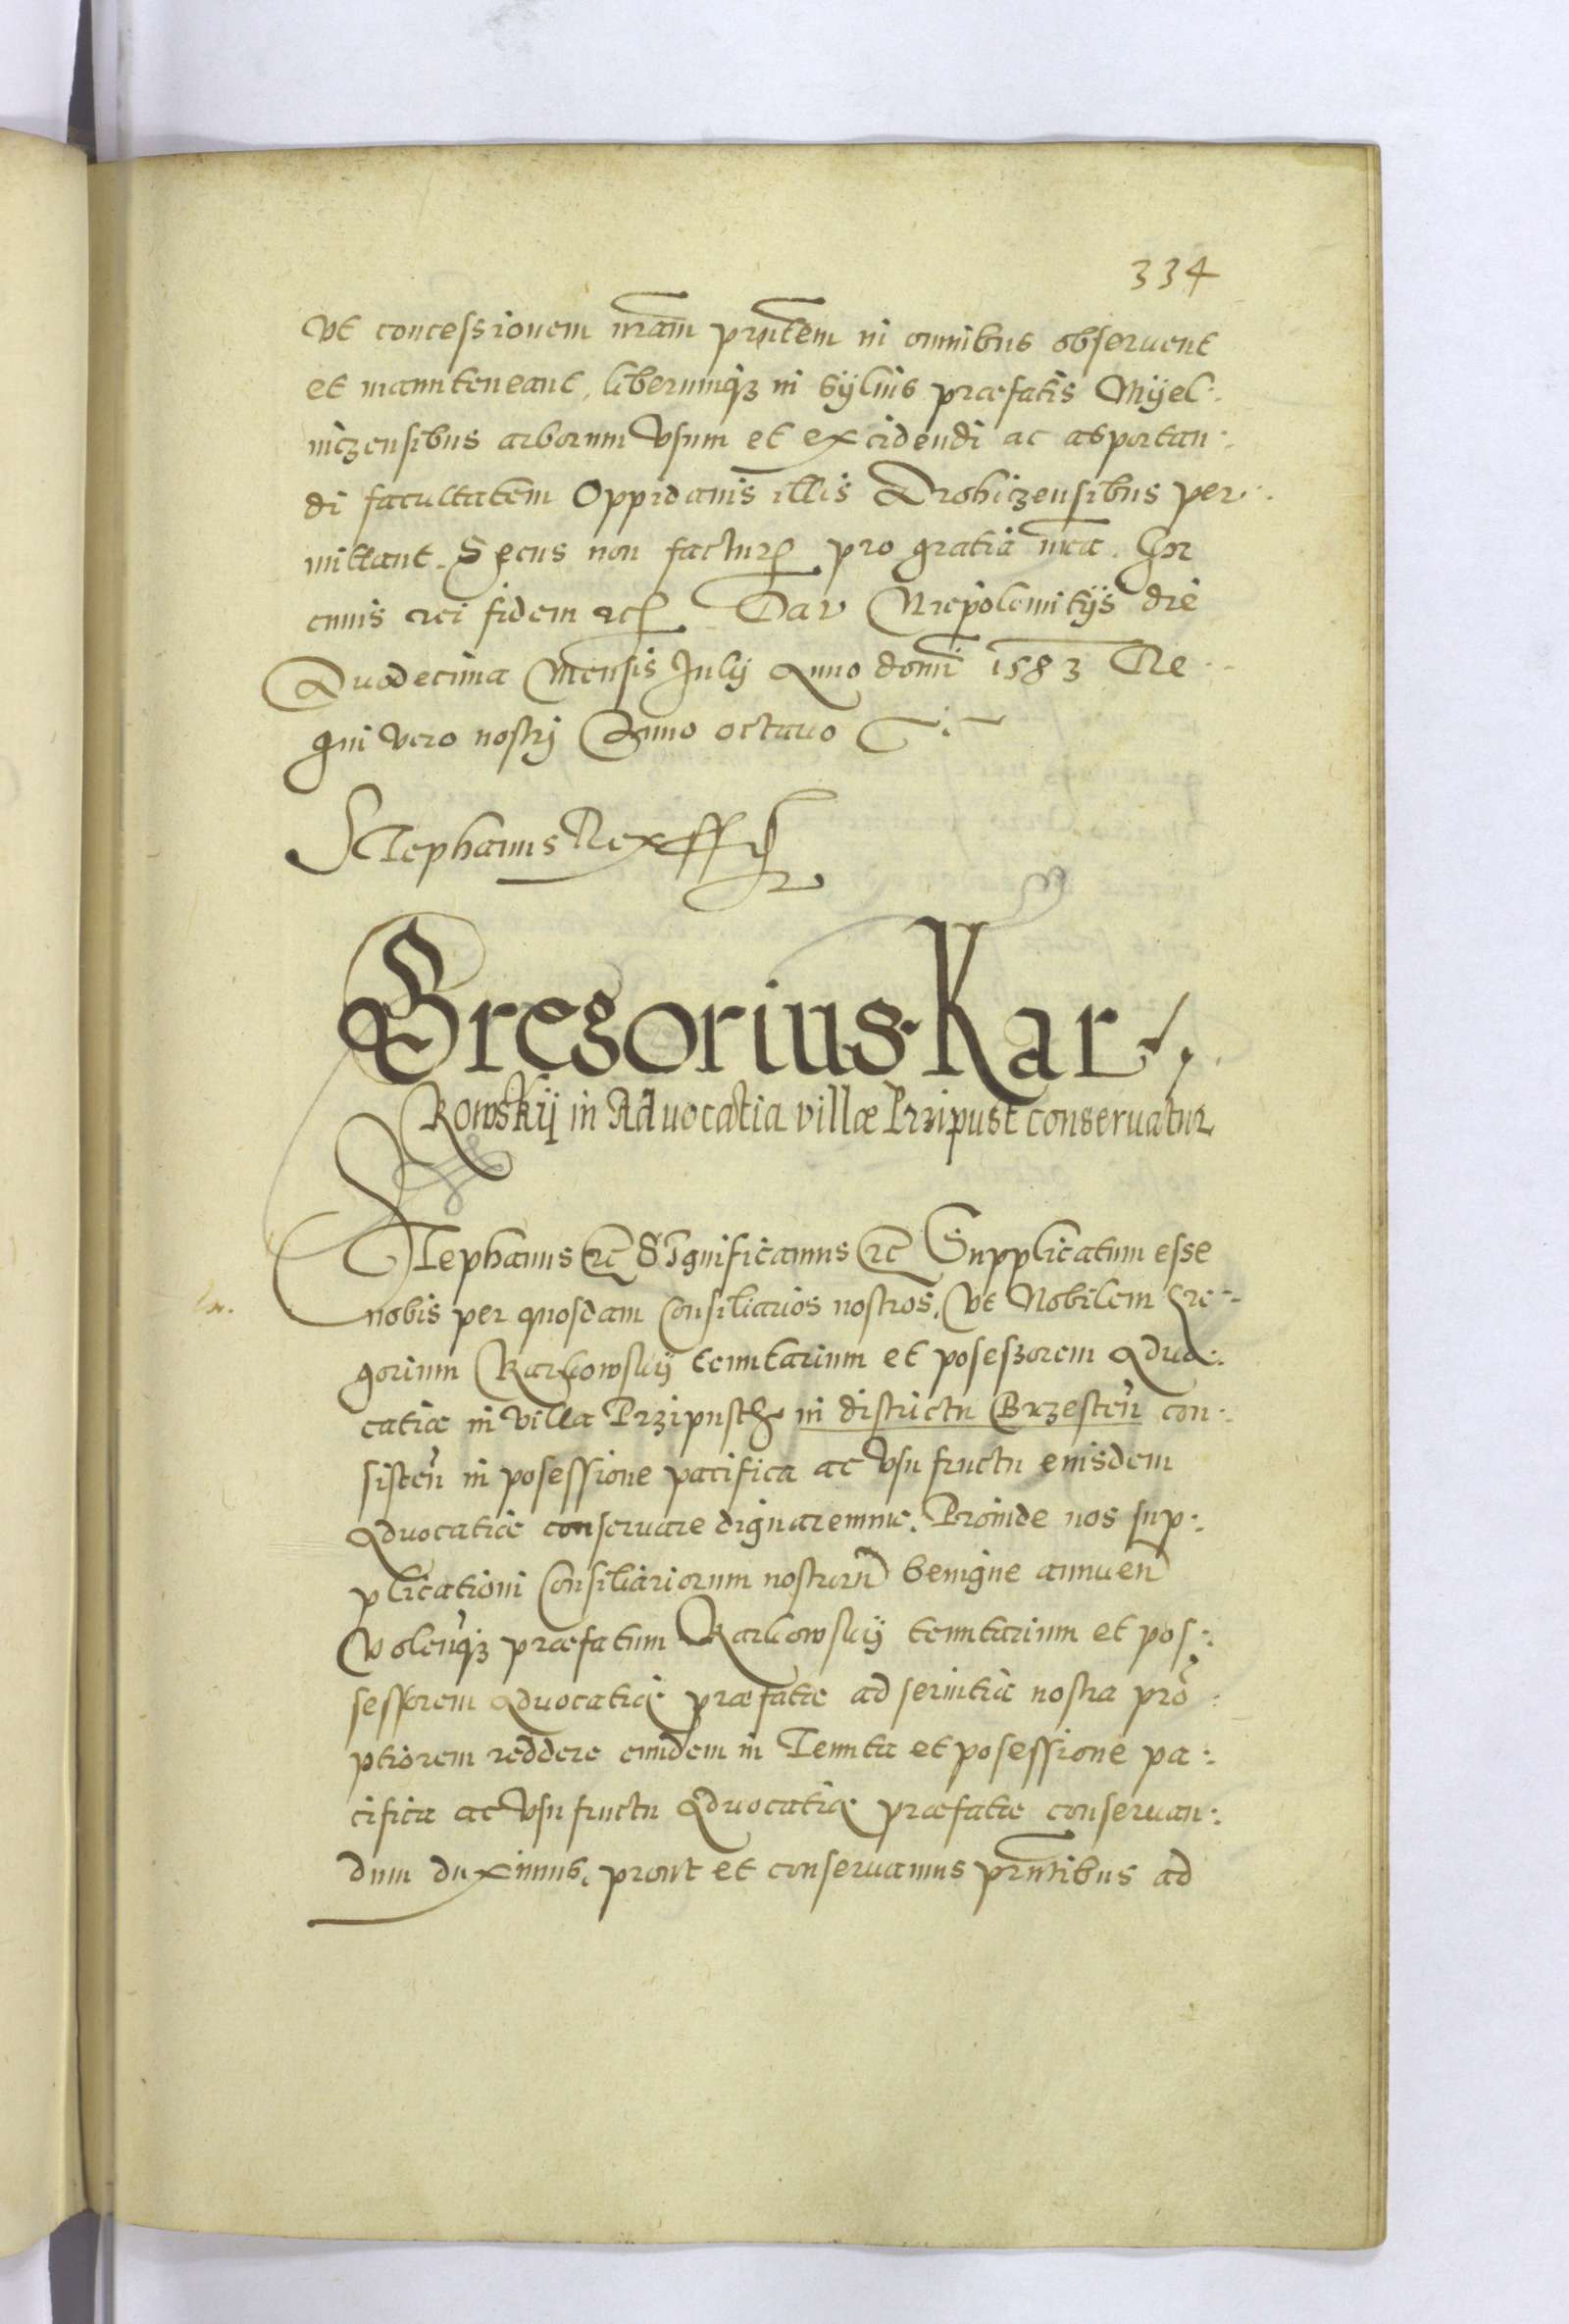 334
vt concessionem nram prntem in omnibus obseruent
et manuteneant, liberumqz in syluis præfatis Myel:
niczensibus arborum vsum et excidendi ac asportan:
di facultatem Oppidanis illis Drohiczensibus per:
mittant. Secus non factur pro gratia nra. Hor
cuius rei fidem etc. Dat Niepolomitijs die
Duodecima Mensis Julij Anno domi 1583 Re:
gni vero nostrj Anno octauo
Stephanus Rex sst
Gregorius Kar:
kowskij in Aduocatia villæ Przipust conseruatur
Stephanus etc Significamus etc Supplicatum esse
nobis per quosdam Consiliarios nostros, vt Nobilem Gre:
gorium Karkowskij tenutarium et poseszorem Aduo:
catiæ in villa Przipusth in districtu Brzesten con:
sisten in posessione pacifica ac vsufructu eiusdem
Aduocatiæ conseruare dignaremur. Proinde nos sup:
plicationi Consiliariorum nostrum benigne annuen
Volenqz præfatum Karkowskij tenutarium et pos:
sessorem Aduocatiæ præfatæ ad seruitia nostra pro:
ptiorem reddere eundem in Tenuta et posessione pa:
cifica ac vsufructu Aduocatiæ præfatæ conseruan:
dum duximus, prout et conseruamus prntibus ad